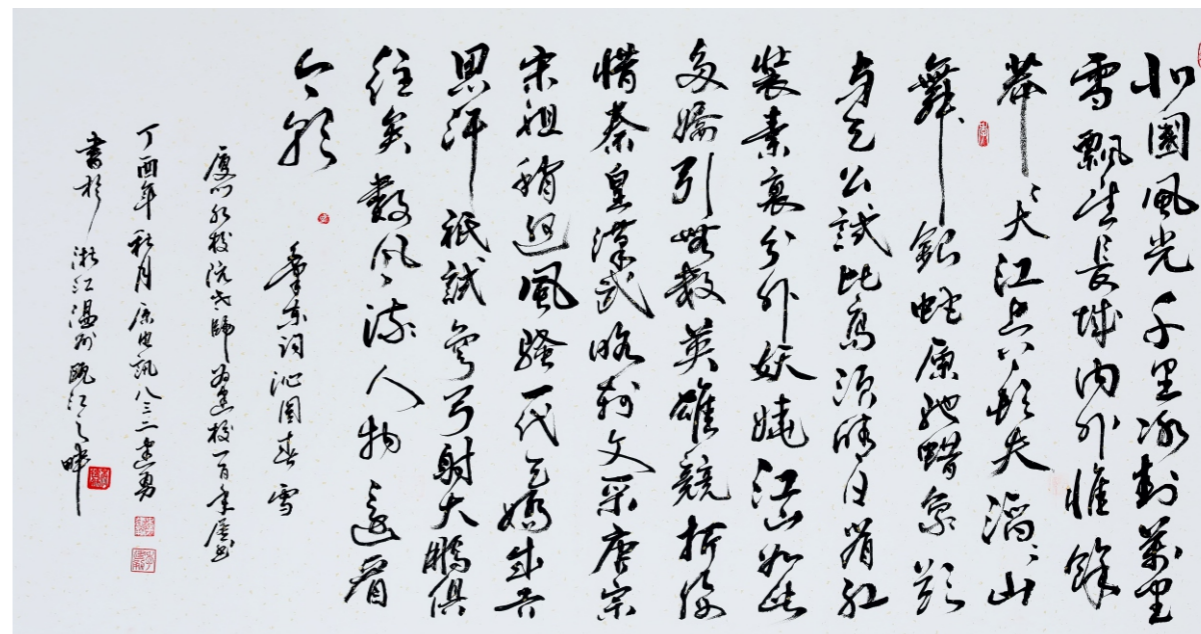 北國風光千里冰封萬里
雪飄望長城内外惟餘
莽〻大江上下頓失滔〻山
舞銀蛇原馳蠟象欲
与天公試比高須晴日看紅
裝素裹分外妖嬈江山如此
多嬌引無數英雄競折腰
惜秦皇漢武略輸文采唐宗
宋祖稍遜風騷一代天驕成吉
思汗祇識彎弓射大鵰俱
往矣數風流人物還看
今朝
東詞沁園春雪
厦门校阮老師為建校一百年屬書
丁酉年秋月八三建勇
書於浙江温州甌江之畔